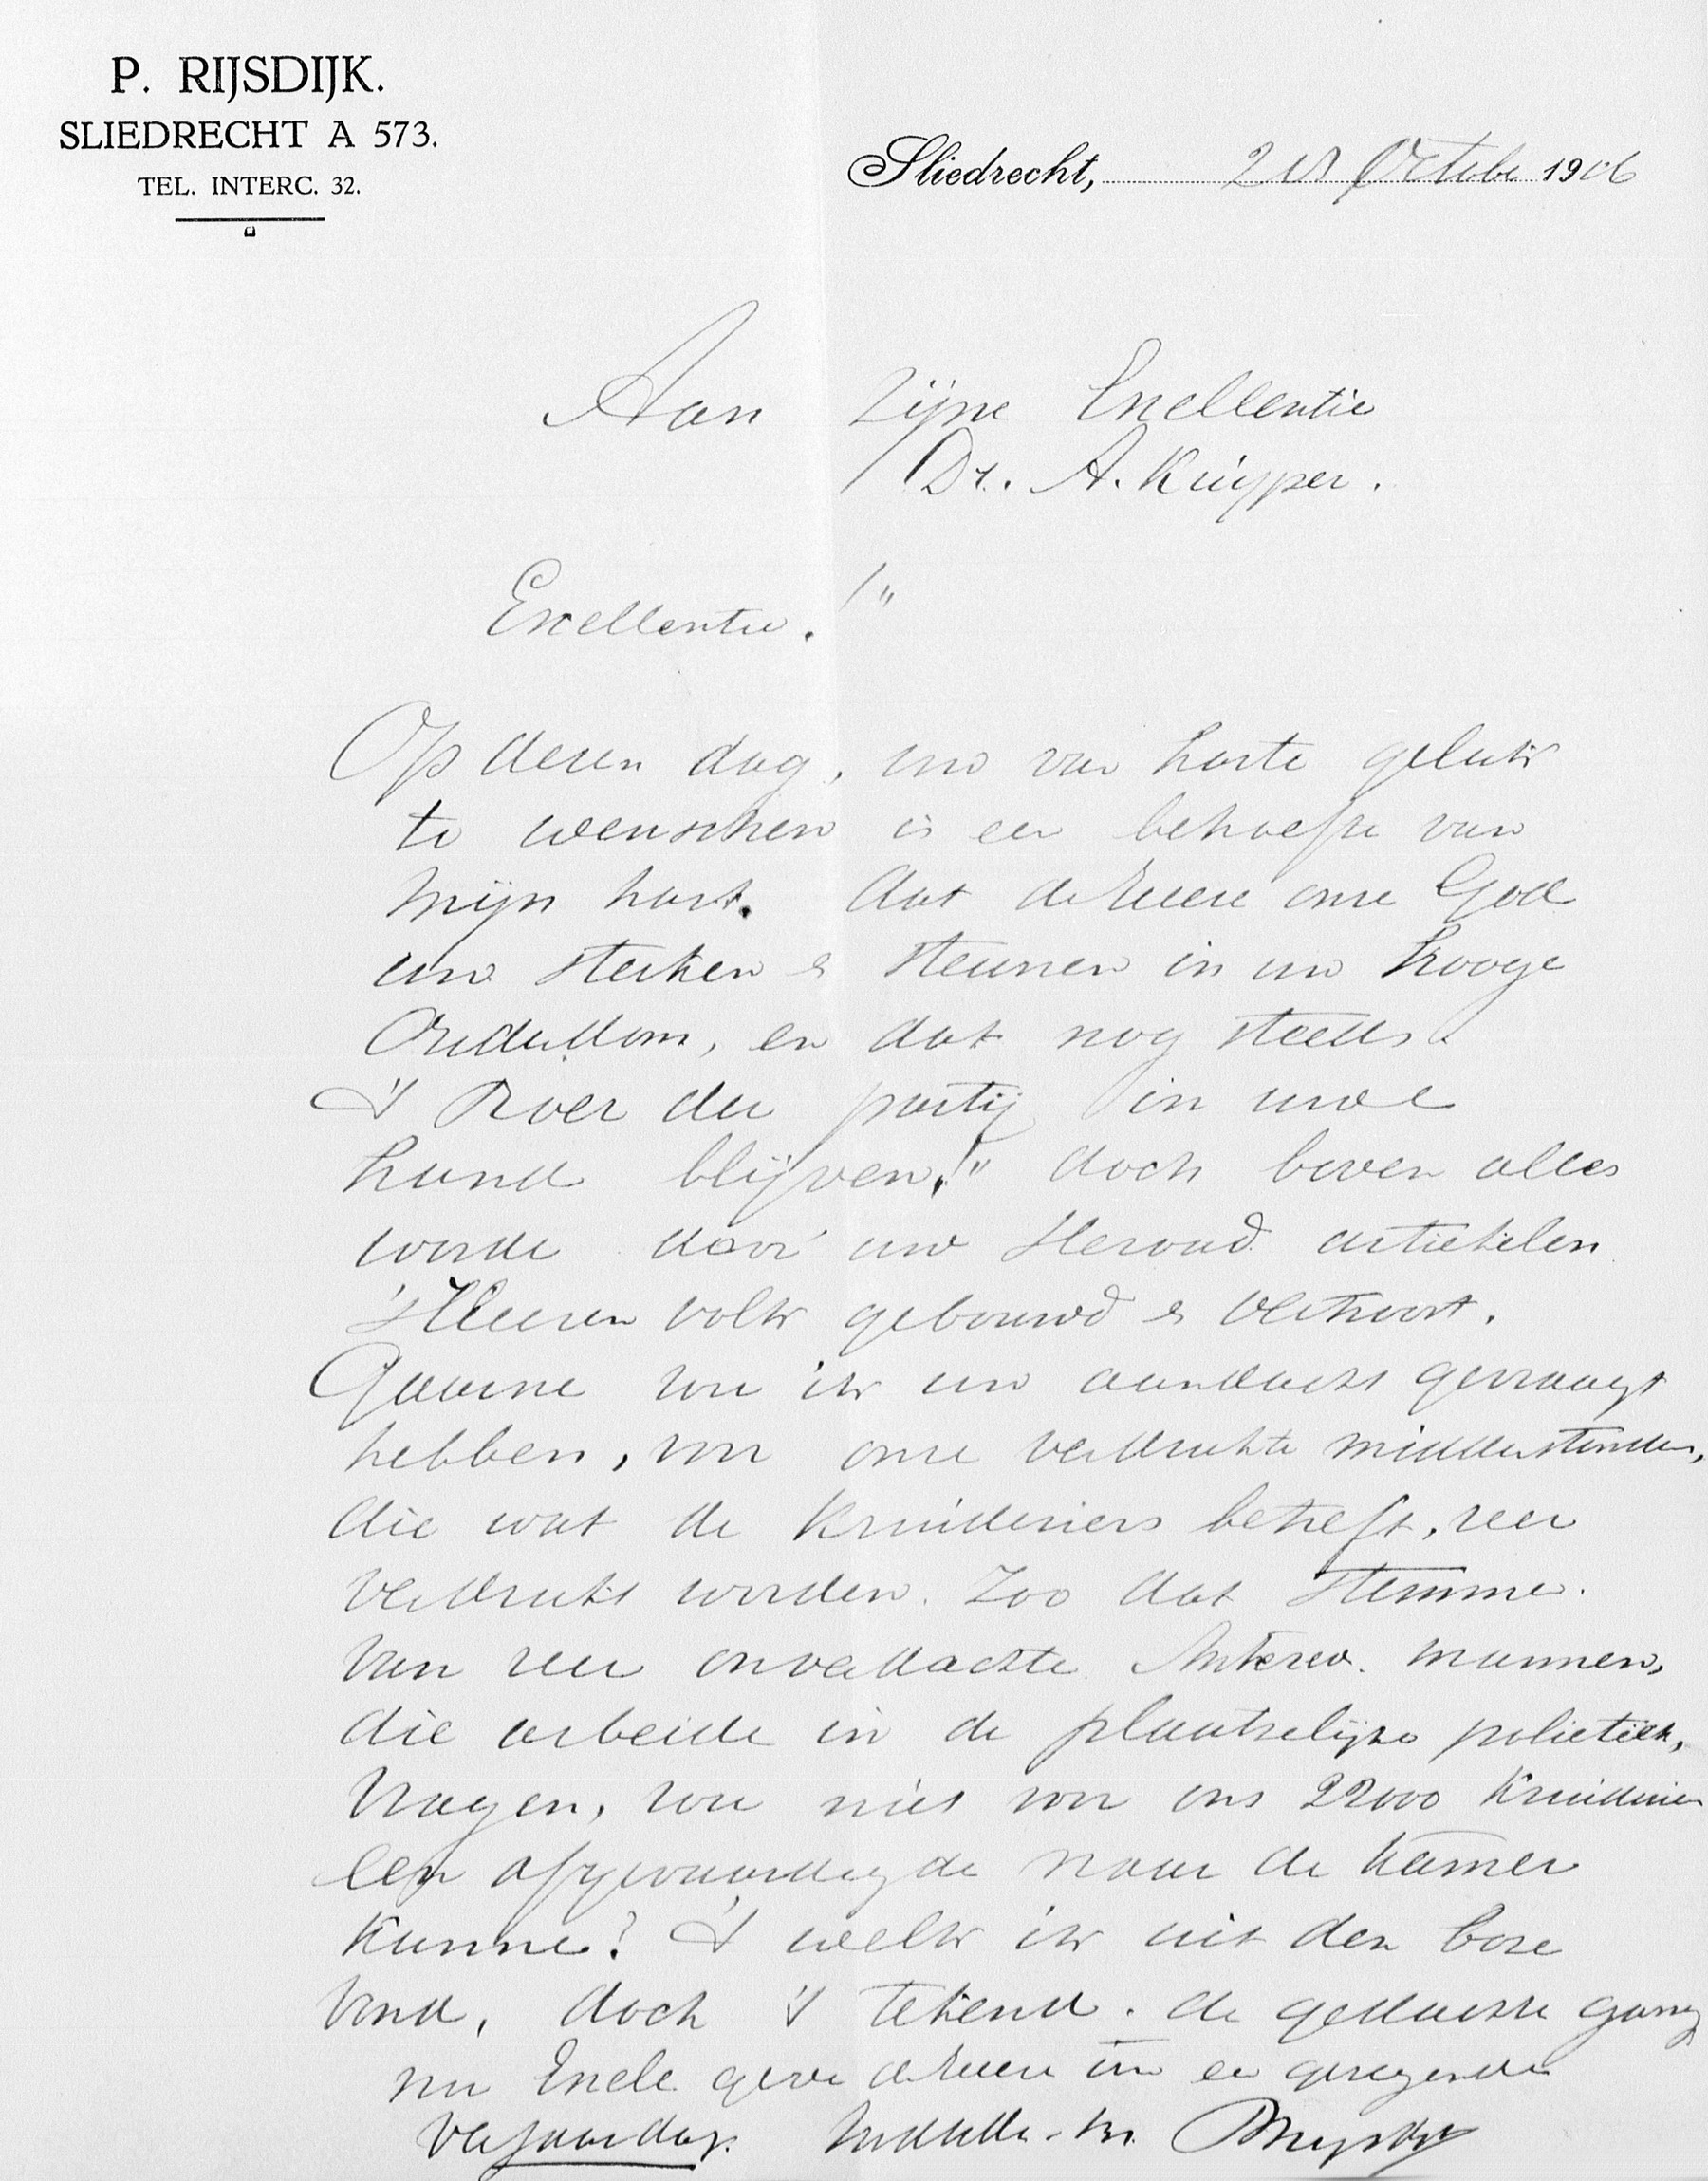 P. RIJSDIJK.
SLIEDRECHT A 573.
TEL. INTERC. 32.
Sliedrecht, October 1906
Aan Zijne Excellentie
Dr. A. Kuijper.
Excellentie.
Op dezen dag, uw van harte geluk
te wenschen is een behoefte van
mijn hart. dat de Heere onze God
uw sterken & steunen in uw hooge
Ouderdom, en dat nog steeds
't Roer der partij in uwe
hand blijven!" doch boven alles
worde door uw Heraud artiekelen
'sHeeren volk gebouwd & vertroost.
Gaarne zou ik uw aandacht gevraagt
hebben, voor onze verdrukte middenstanders,
die wat de kruideniers betreft, zeer
verdrukt worden. Zoo dat stemme.
van zeer onverdachte Antirev. mannen,
die arbeide in de plaatselijke polietiek,
vragen, zou niet voor ons 22000 kruidenier
een afgevaardigde naar de kamer
kunne? 't welk ik uit den boze
vond, doch 't tekend. de gedachte gang
nu Excle. geve de Heere uw een gezegende
verjaardag.